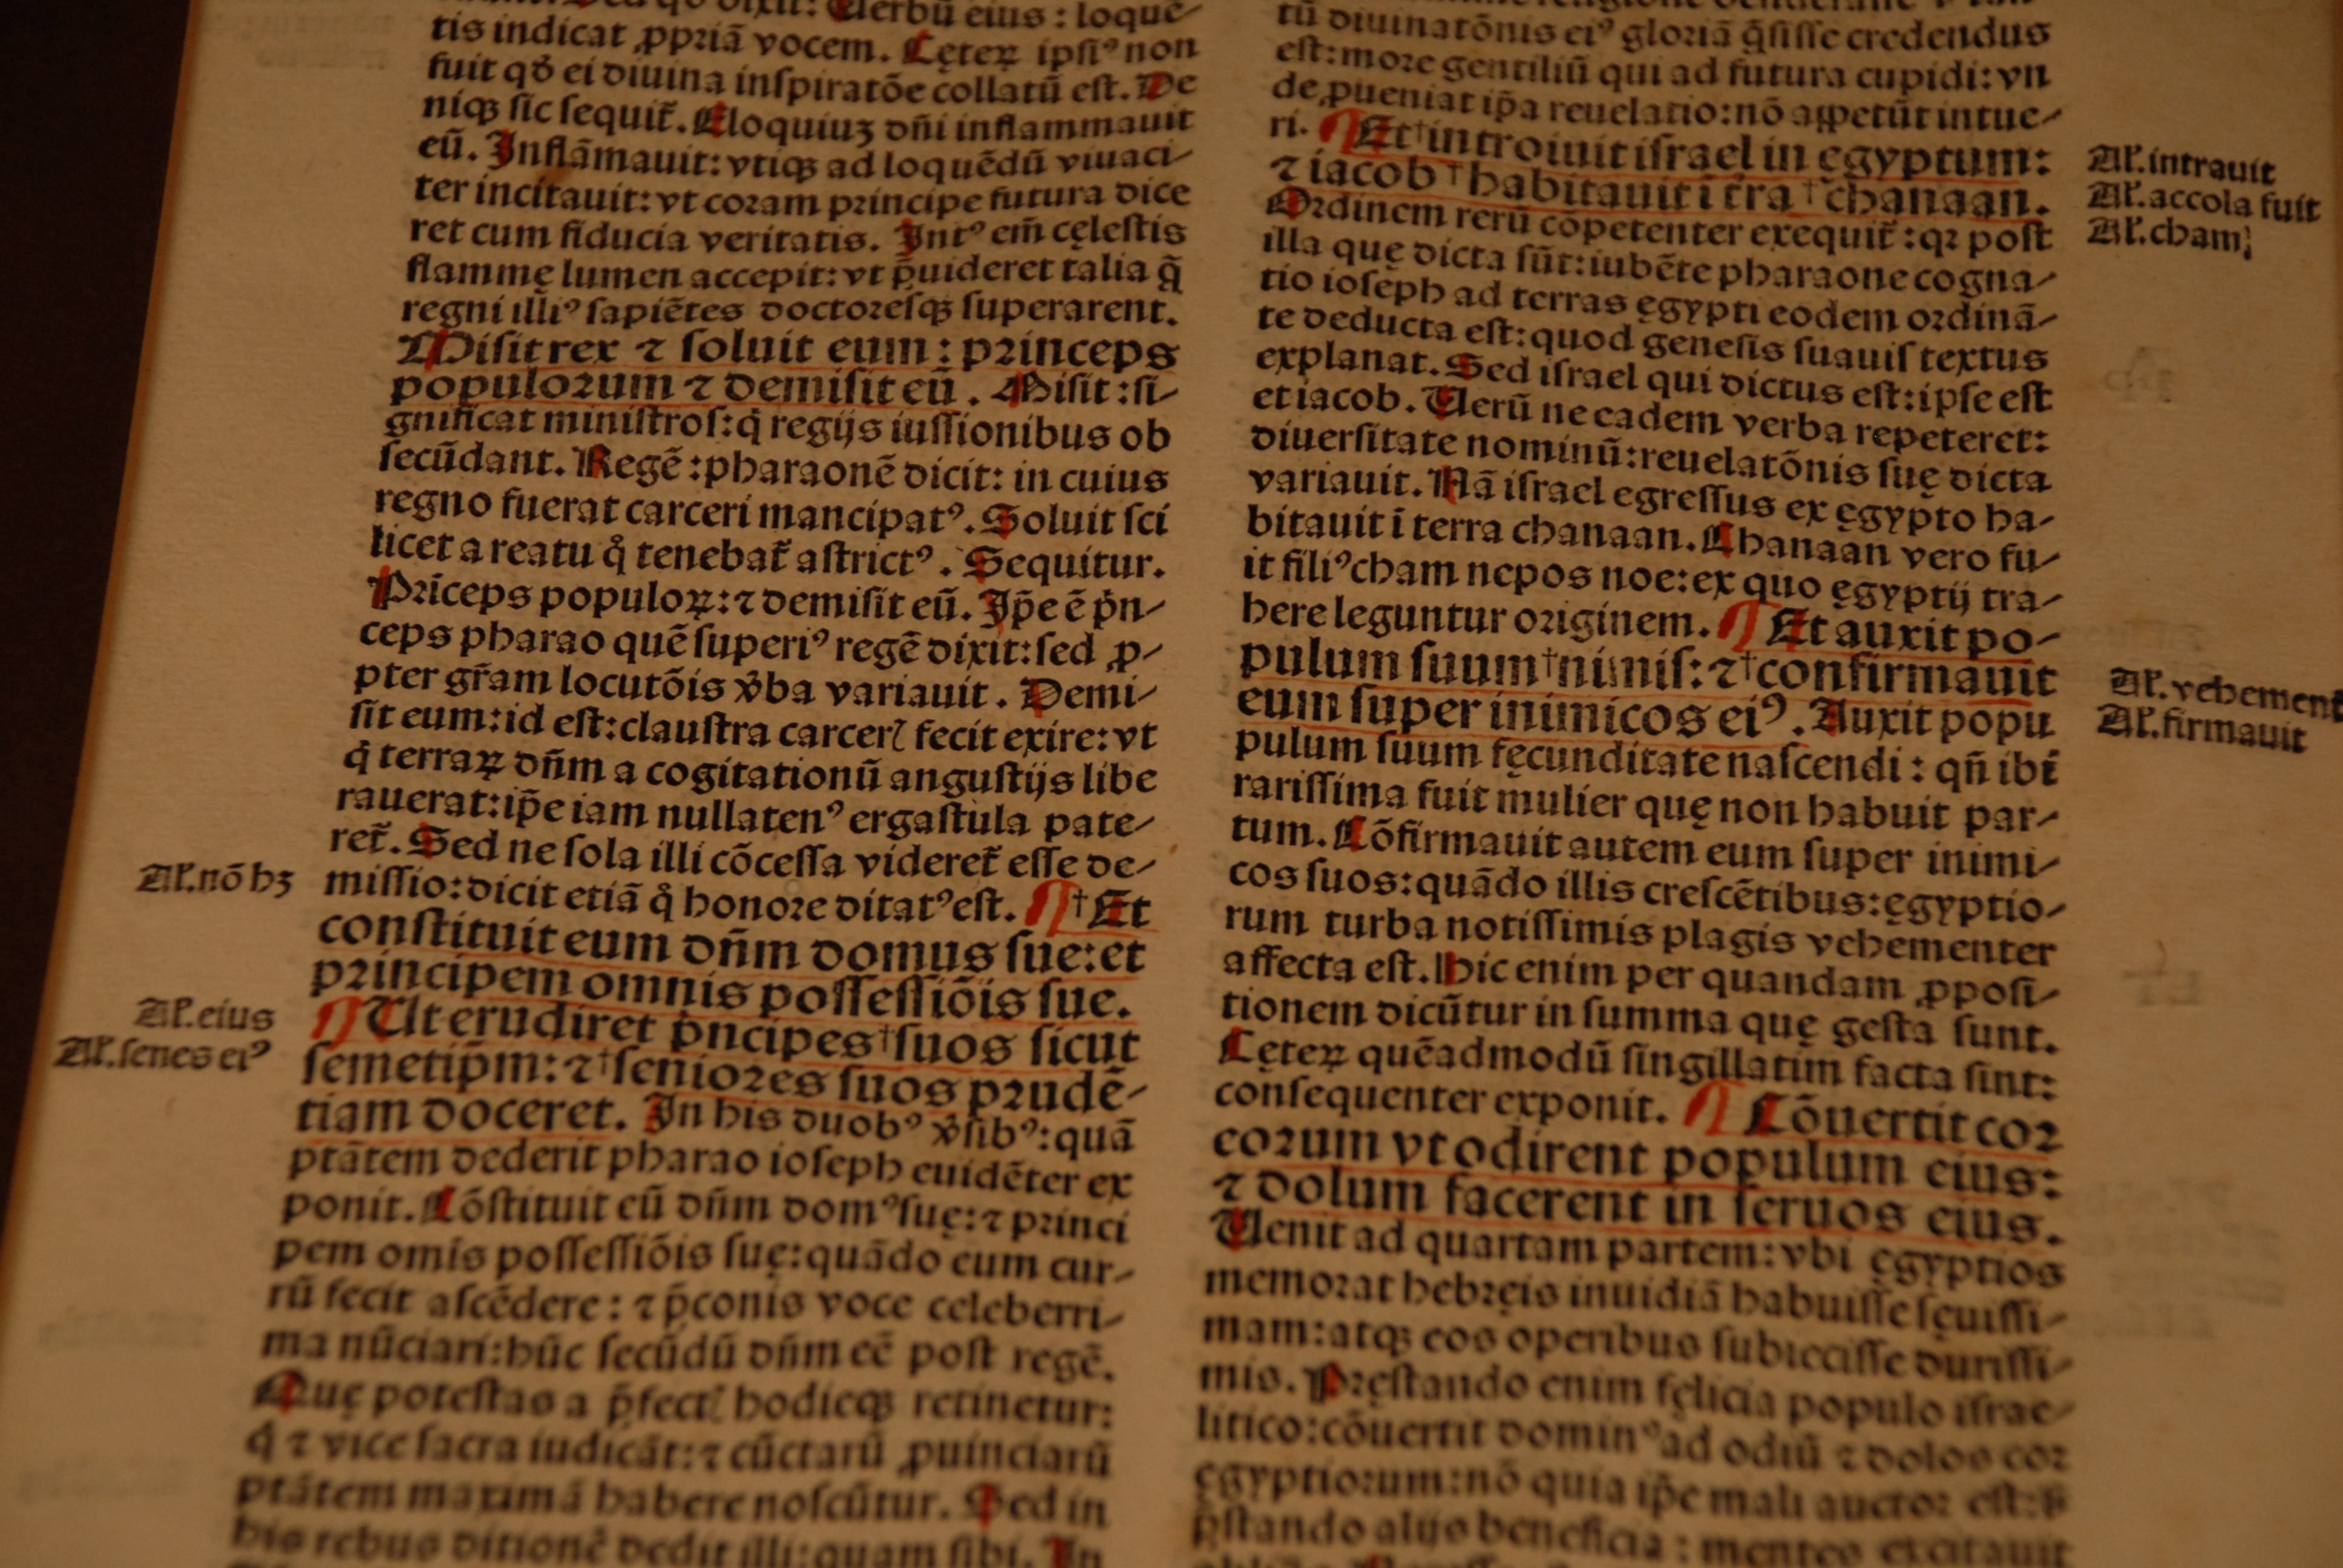 qđ dixit: Uerbū eius: loquē-
tis indicat ꝓpriā vocem. Cęteꝝ ipsiꝰ non
fuit qđ ei diuina inſpiratōe collatū eſt. De
niqꝫ ſic ſequit̃. Eloquiuꝫ dñi inflammauit
eū. Inflāmauit: vtiqꝫ ad loquēdū viuaci-
ter incitauit: vt coram principe futura dice
ret cum fiducia veritatis. Intꝰ em̃ cęleſtis
flammę lumen accepit: vt p̃uideret talia q̃
regni illiꝰ ſapiētes doctoreſqꝫ ſuperarent.
Miſit rex ⁊ ſoluit eum: princeps
populorum ⁊ demiſit eū. Miſit: ſi-
gnificat miniſtroſ: q̇ regijs iuſſionibus ob
ſecūdant. Regē: pharaonē dicit: in cuius
regno fuerat carceri mancipatꝰ. Soluit ſci
licet a reatu q̊ tenebat̃ aſtrictꝰ. Sequitur.
Prīceps populoꝝ: ⁊ demiſit eū. Ip̄e ē p̍n-
ceps pharao quē ſuperiꝰ regē dixit: ſed ꝓ-
pter gr̃am locutōis v̾ba variauit. Demi-
ſit eum: id eſt: clauſtra carcerꝭ fecit exire: vt
q̇ terraꝝ dñm a cogitationū anguſtijs libe
rauerat: ip̄e iam nullatenꝰ ergaſtula pate-
ret̃. Sed ne ſola illi cōceſſa videret̃ eſſe de-
Al'. nō hꝫ
miſſio: dicit etiā q̊ honore ditatꝰ eſt. ¶ †Et
conſtituit eum dñm domus ſue: et
principem omnis poſſeſſiōis ſue.
Al'. eius
¶ Ut erudiret p̍ncipes †ſuos ſicut
Al'. ſenes eiꝰ
ſemetip̄m: ⁊ †ſeniores ſuos prudē-
tiam doceret. In his duobꝰ v̾ſibꝰ: quā
ptātem dederit pharao ioſeph euidēter ex
ponit. Cōſtituit eū dñm domꝰ ſuę: ⁊ princi
pem omīs poſſeſſiōis ſuę: quādo eum cur-
rū fecit aſcēdere: ⁊ p̄conis voce celeberri-
ma nūciari: hūc ſecūdū dñm eē poſt regē.
Quę poteſtas a p̄fectꝭ hodieqꝫ retinetur:
q̇ ⁊ vice ſacra iudicāt: ⁊ cūctarū ꝓuinciarū
ptātem maximā habere noſcūtur. Sed in
his rebus ditionē dedit illi: quam ſibi. In
tū diuinatōnis eiꝰ gloriā q̄ſiſſe credendus
eſt: more gentiliū qui ad futura cupidi: vn
de ꝓueniat ip̄a reuelatio: nō appetūt intue-
ri. ¶ Et †introiuit iſrael in ęgyptum:
Al'. intrauit
⁊ iacob †habitauit ī tr̃a †chanaan.
Al'. accola fuit
Ordinem rerū cōpetenter exequit̃: qꝛ poſt
Al'. cham
illa quę dicta ſūt: iubēte pharaone cogna-
tio ioſeph ad terras ęgypti eodem ordinā-
te deducta eſt: quod geneſis ſuauiſ textus
explanat. Sed iſrael qui dictus eſt: ipſe eſt
et iacob. Uerū ne eadem verba repeteret:
diuerſitate nominū: reuelatōnis ſuę dicta
variauit. Nā iſrael egreſſus ex ęgypto ha-
bitauit ī terra chanaan. Chanaan vero fu-
it filiꝰ cham nepos noe: ex quo ęgyptij tra-
here leguntur originem. ¶ Et auxit po-
pulum ſuum †nimiſ: ⁊ †confirmauit
Al'. vehement
eum ſuper inimicos eiꝰ. Auxit popu
Al'. firmauit
pulum ſuum fęcunditate naſcendi: qñ ibi
rariſſima fuit mulier quę non habuit par-
tum. Cōfirmauit autem eum ſuper inimi-
cos ſuos: quādo illis creſcētibus: ęgyptio-
rum turba notiſſimis plagis vehementer
affecta eſt. Hic enim per quandam ꝓpoſi-
tionem dicūtur in ſumma quę geſta ſunt.
Cęteꝝ quēadmodū ſingillatim facta ſint:
conſequenter exponit. ¶ Cōuertit cor
eorum vt odirent populum eius:
⁊ dolum facerent in ſeruos eius.
Uenit ad quartam partem: vbi ęgyptios
memorat hebręis inuidiā habuiſſe ſęuiſſi-
mam: atqꝫ eos operibus ſubieciſſe duriſſi-
mis. Pręſtando enim fęlicia populo iſrae-
litico: cōuertit dominꝰ ad odiū ⁊ dolos cor
ęgyptiorum: nō quia ip̄e mali auctor eſt: ſꝫ
p̄ſtando alijs beneficia: mentes excitauit